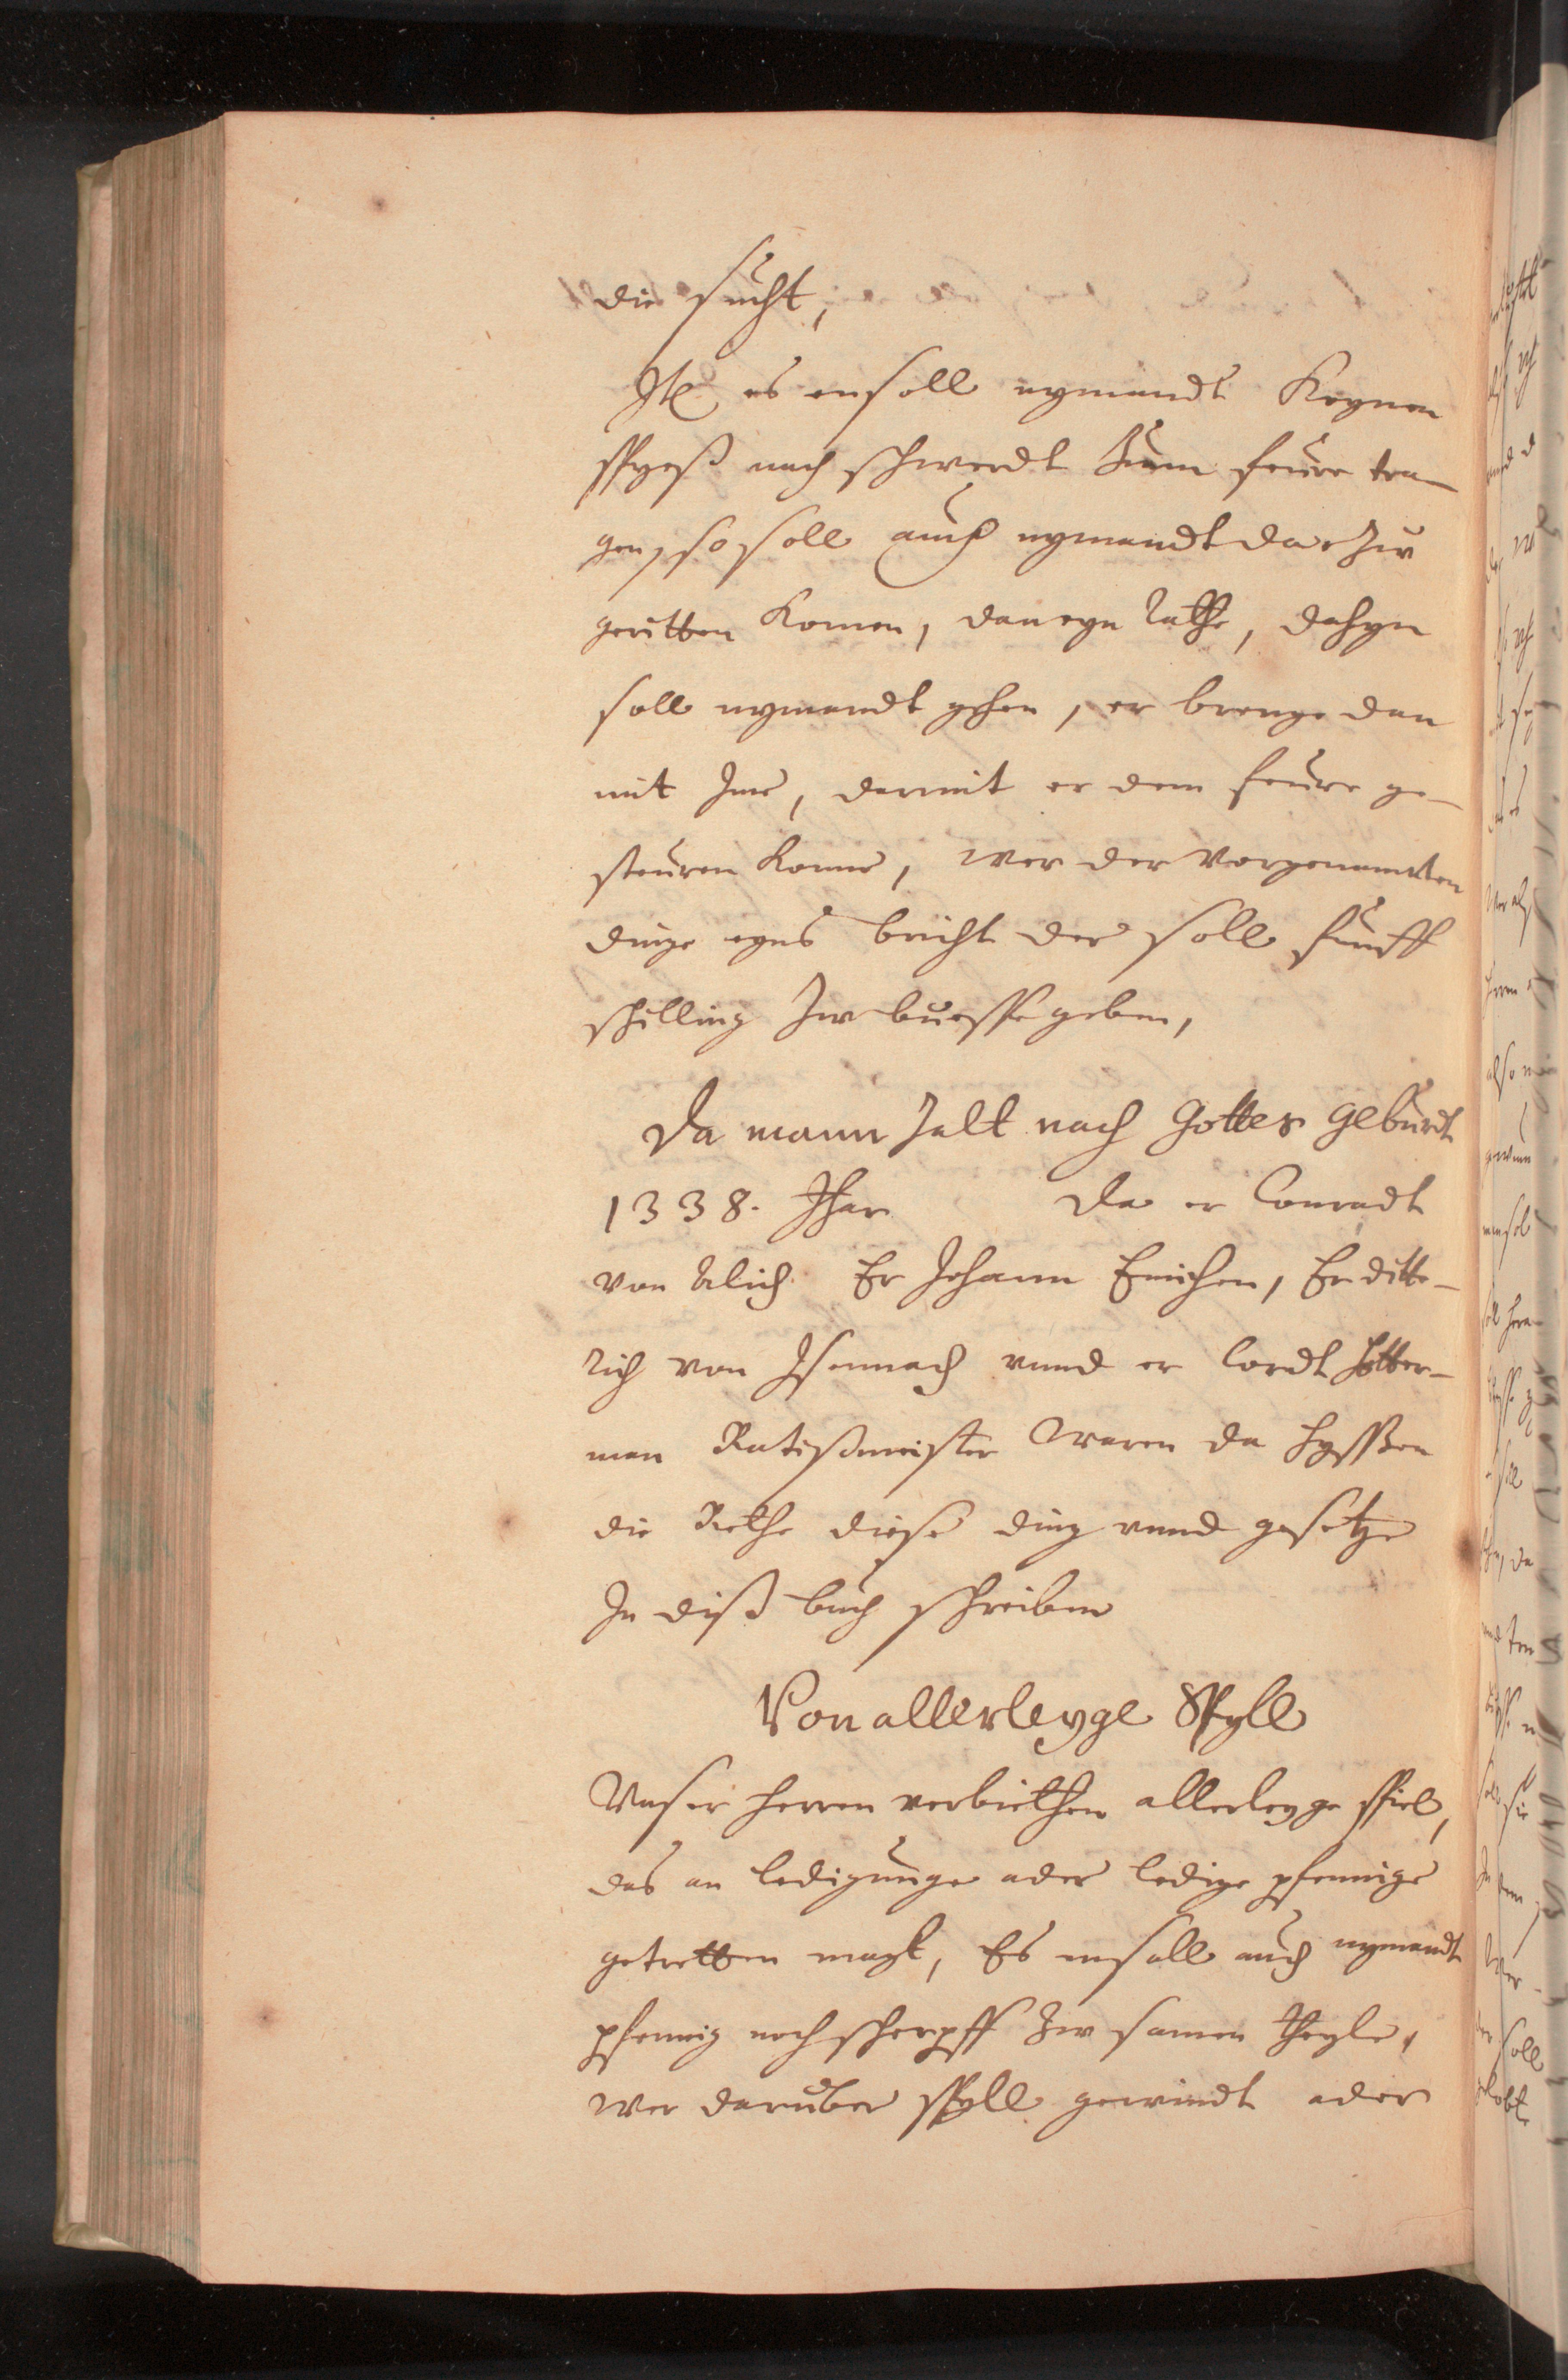 die sucht,
Itē es ensoll nymandt keynen
spyeß nach schwerdt zum feure tra-
gen, so soll auch nymandt darzu
geritten komen, dan eyn rathe, dahyn
soll nymandt gehen, er brenge dan
mit Ime, darmit er dem feure ge-
steuren konne, wer der vorgenantten
dinge eyns bricht der soll funff
schilling zw buesse geben,
Da mann zalt nach Gottes geburdt
1338. Jhar da er Conradt
von Alich Er Johann Emichen, Er ditte-
rich von Isennach vnnd er Cordt Hotter-
man Ratißmeister waren da hyssßen
die Rethe diese ding vnnd gesetze
In diß buch schreiben
Von allerleyge Spyll
Vnser herren verbiethen allerleyge spiel,
das an ledigunge ader ledige pfennige
getretten magk, Es ensall auch nymandt
pfennig noch scherpff zw samen theyle,
wer daruber spyll gewindt ader